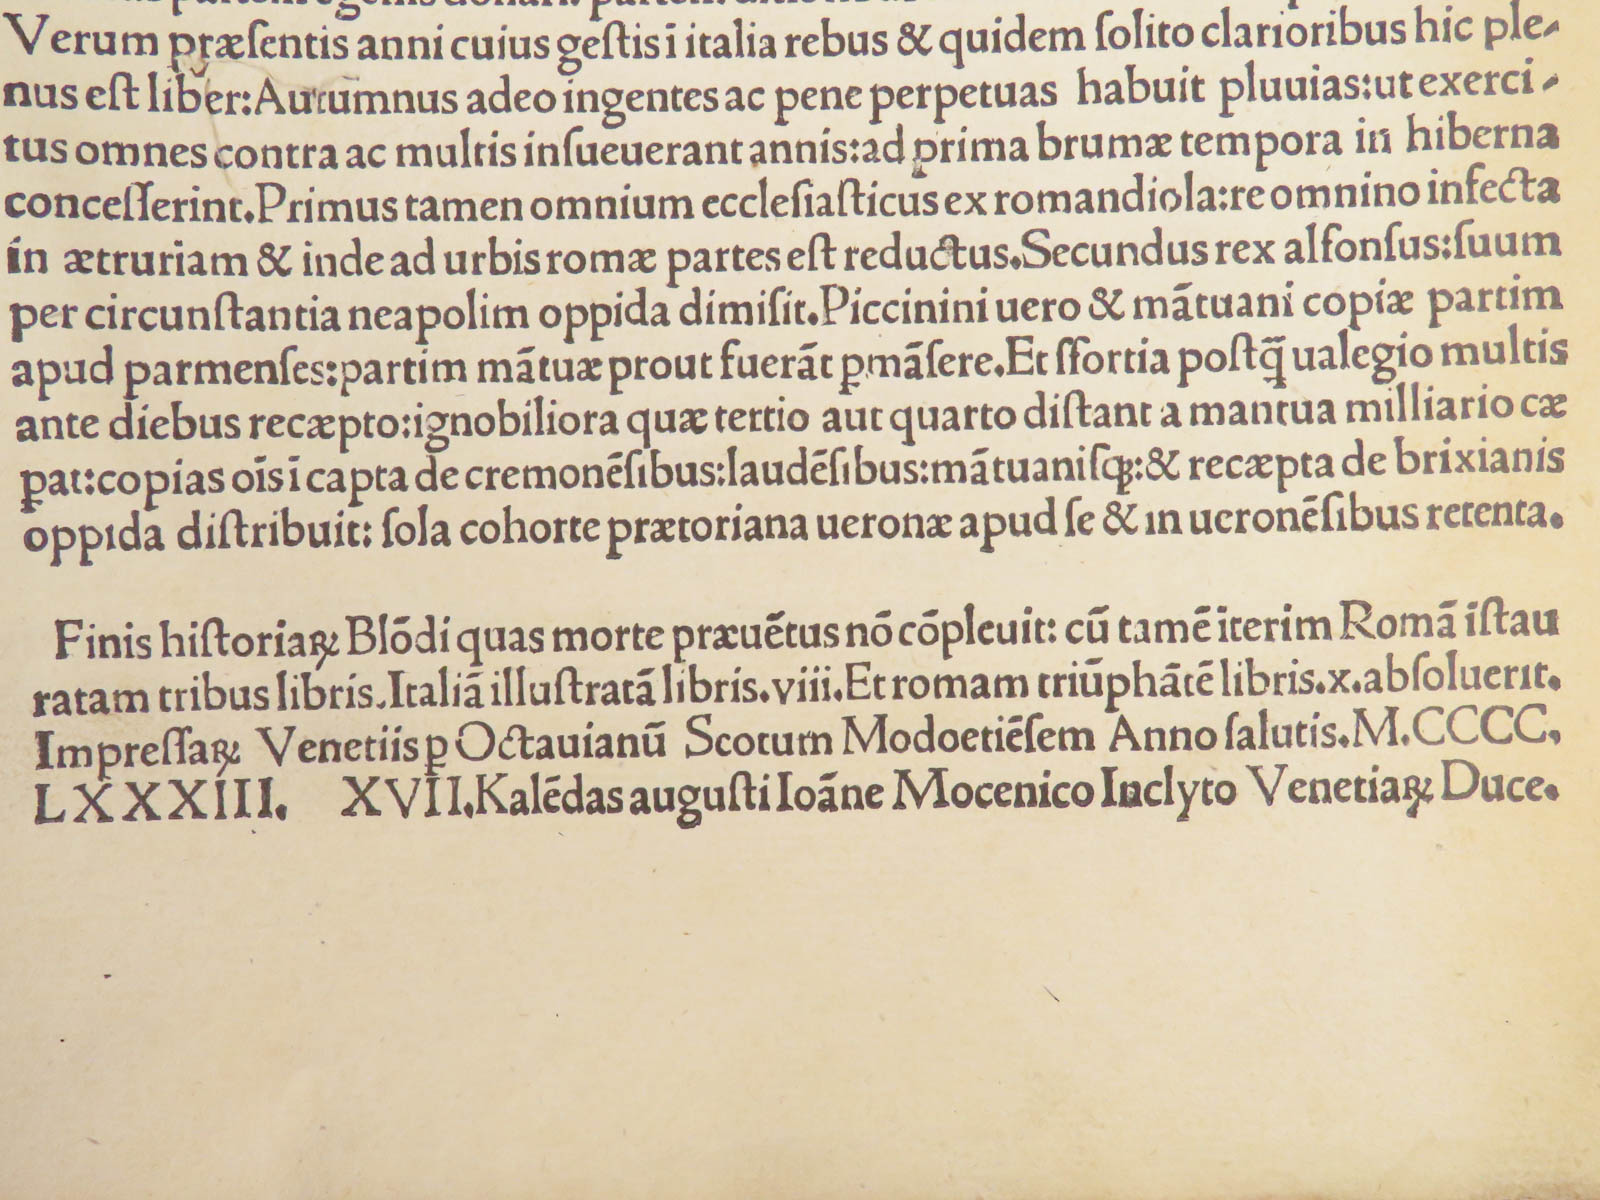 Verum præſentis anni cuius geſtis ī italia rebus & quidem ſolito clarioribus hic ple-
nus eſt liber: Autumnus adeo ingentes ac pene perpetuas habuit pluuias: ut exerci-
tus omnes contra ac multis inſueuerant annis: ad prima brumæ tempora in hiberna
conceſſerint. Primus tamen omnium eccleſiaſticus ex romandiola: re omnino infecta
in ætruriam & inde ad urbis romæ partes eſt reductus. Secundus rex alfonſus: ſuum
per circunſtantia neapolim oppida dimiſit. Piccinini uero & mātuani copiæ partim
apud parmenſes: partim mātuæ prout fuerāt ꝑmāſere. Et ſfortia poſtq̄ ualegio multis
ante diebus recæpto: ignobiliora quæ tertio aut quarto diſtant a mantua milliario cæ
ꝑat: copias oīs ī capta de cremonēſibus: laudēſibus: mātuaniſq;: & recæpta de brixianis
oppida diſtribuit: ſola cohorte prætoriana ueronæ apud ſe & in ueronēſibus retenta.
Finis hiſtoriaꝝ Blōdi quas morte præuētus nō cōpleuit: cū tamē iterim Romā iſtau
ratam tribus libris. Italiā illuſtratā libris. viii. Et romam triūphātē libris. x. abſoluerit.
Impreſſaꝝ Venetiis ꝑ Octauianū Scotum Modoetiēſem Anno ſalutis. M.CCCC.
LXXXIII. XVII. Kalēdas auguſti Ioāne Mocenico Inclyto Venetiaꝝ Duce.